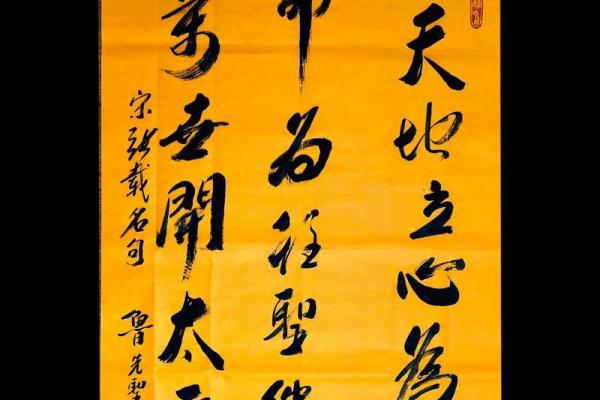 天地立心為
命为往聖
萬世開太
宋張載名句 魯先聖